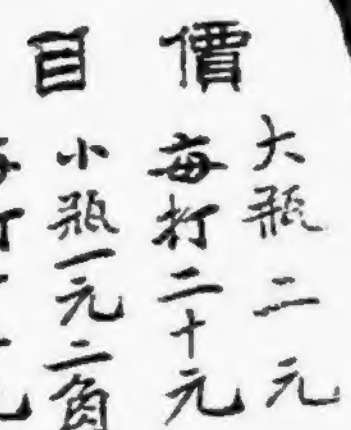 價目
大瓶二元
每打二十元
小瓶一元二角